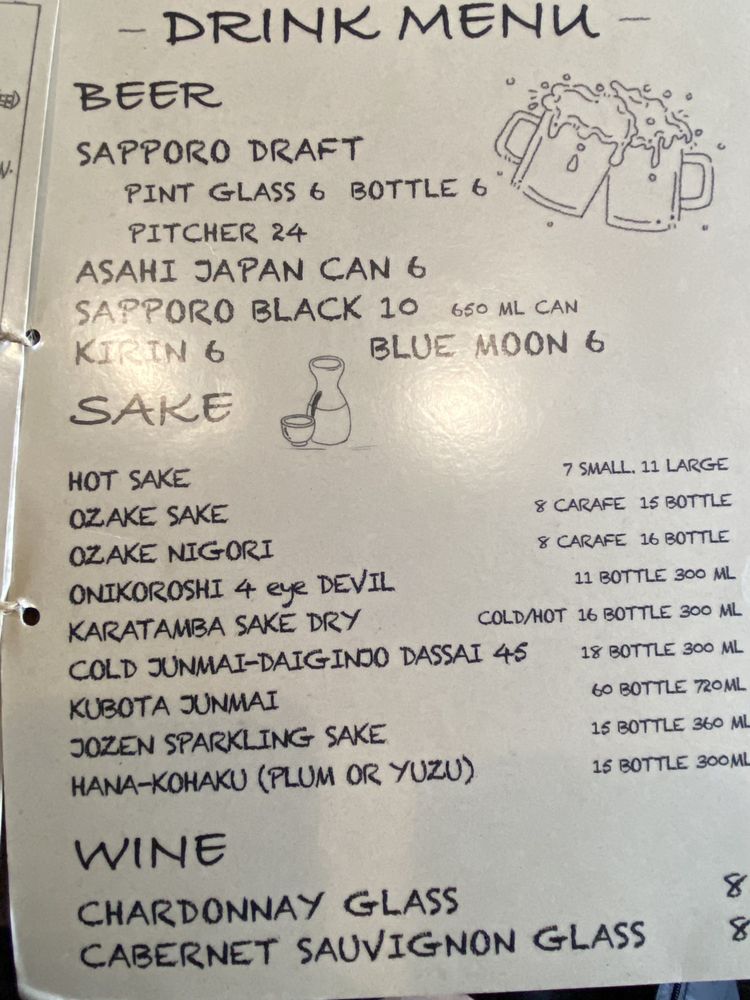 - DRINK MENU -
BEER
SAPPORO DRAFT
PINT GLASS 6 BOTTLE 6
PITCHER 24
ASAHI JAPAN CAN 6
SAPPORO BLACK 10 650 ML CAN
KIRIN 6 BLUE MOON 6
SAKE
HOT SAKE 7 SMALL. 11 LARGE
OZAKE SAKE 8 CARAFE 15 BOTTLE
OZAKE NIGORI 8 CARAFE 16 BOTTLE
ONIKOROSHI 4 eye DEVIL 11 BOTTLE 300 ML
KARATAMBA SAKE DRY COLD/HOT 16 BOTTLE 300 ML
COLD JUNMAI-DAIGINJO DASSAI 45 18 BOTTLE 300 ML
KUBOTA JUNMAI 60 BOTTLE 720ML
JOZEN SPARKLING SAKE 15 BOTTLE 360 ML
HANA-KOHAKU (PLUM OR YUZU) 15 BOTTLE 300ML
WINE
CHARDONNAY GLASS 8
CABERNET SAUVIGNON GLASS 8